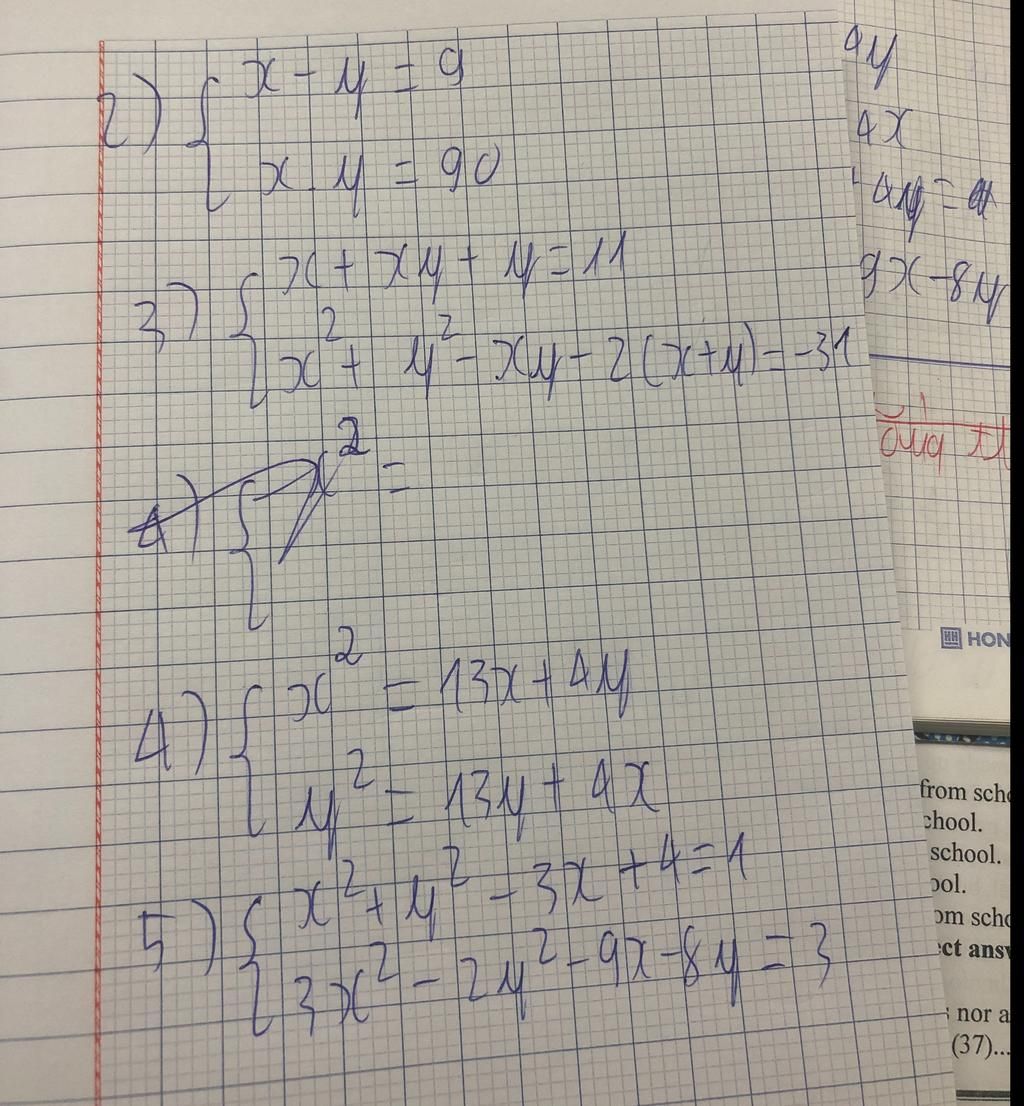 2) { x - y = 9
x . y = 90
3) { x + xy + y = 11
x² + y² - xy - 2(x+y) = -31
4) { x² =
4) { x² = 13x + 4y
y² = 13y + 4x
5) { x² + y² - 3x + 4 = 1
3x² - 2y² - 9x - 8y = 3
4y
4x
4y =
9x - 8y
HON
from scho
chool.
school.
ool.
om scho
ect answ
nor a
(37)...